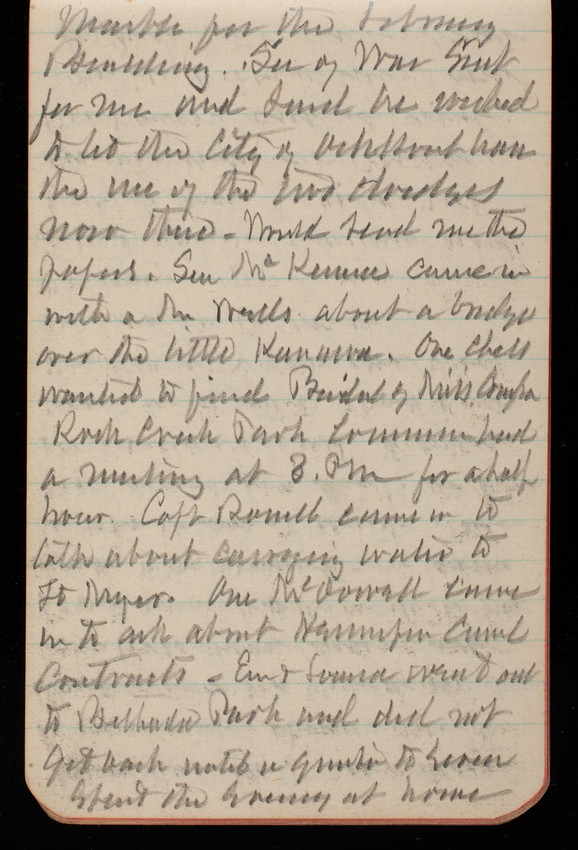 Marble for the Library
Building. Sec of War Sent
for me and said he wished
to let the City of have
the use of the two dredges
now there - Would send me the
papers. Sen McKenna came in
with a Mr Wells about a bridge
over the little Kanawa. One Chell
wanted to find of
Rock Creek Park Commission had
a meeting at 3. Pm for a half
hour. Capt Powell came in to
talk about carrying water to
Ft Myer. One McDowell came
in to ask about Hennepin Canal
Contracts - Em & went out
to Bethesda Park and did not
get back until a quarter to Seven
Spend the Evening at home